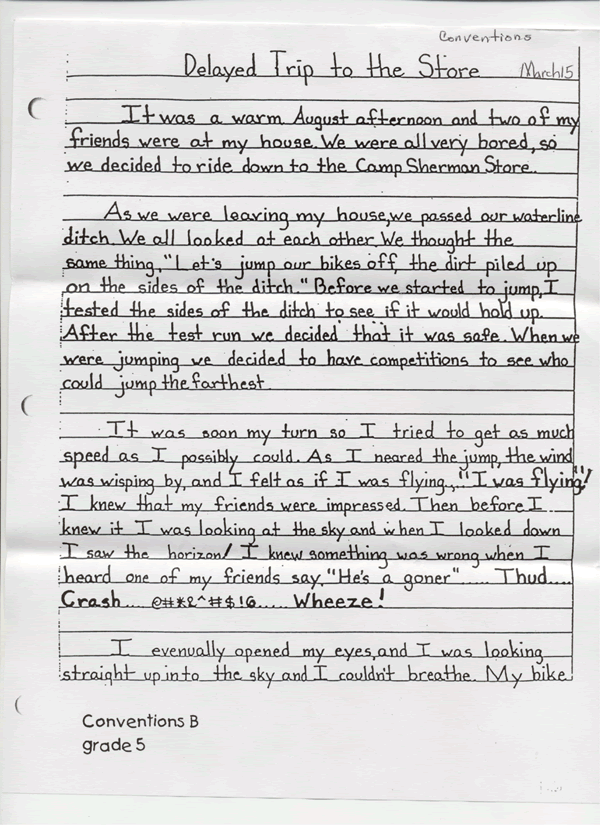 Conventions
Delayed Trip to the Store March 15
It was a warm August afternoon and two of my
friends were at my house. We were all very bored, so
we decided to ride down to the Camp Sherman Store.
As we were leaving my house, we passed our waterline
ditch. We all looked at each other. We thought the
same thing, "Let's jump our bikes off, the dirt piled up
on the sides of the ditch." Before we started to jump, I
tested the sides of the ditch to see if it would hold up.
After the test run we decided that it was safe. When we
were jumping we decided to have competitions to see who
could jump the farthest
It was soon my turn so I tried to get as much
speed as I possibly could. As I neared the jump, the wind
was wisping by, and I felt as if I was flying., "I was flying"!
I knew that my friends were impressed. Then before I
knew it I was looking at the sky and when I looked down
I saw the horizon! I knew something was wrong when I
heard one of my friends say, "He's a goner"..... Thud....
Crash.... @#*&^#$!6..... Wheeze!
I evenually opened my eyes, and I was looking
straight up into the sky and I couldn't breathe. My bike
Conventions B
grade 5